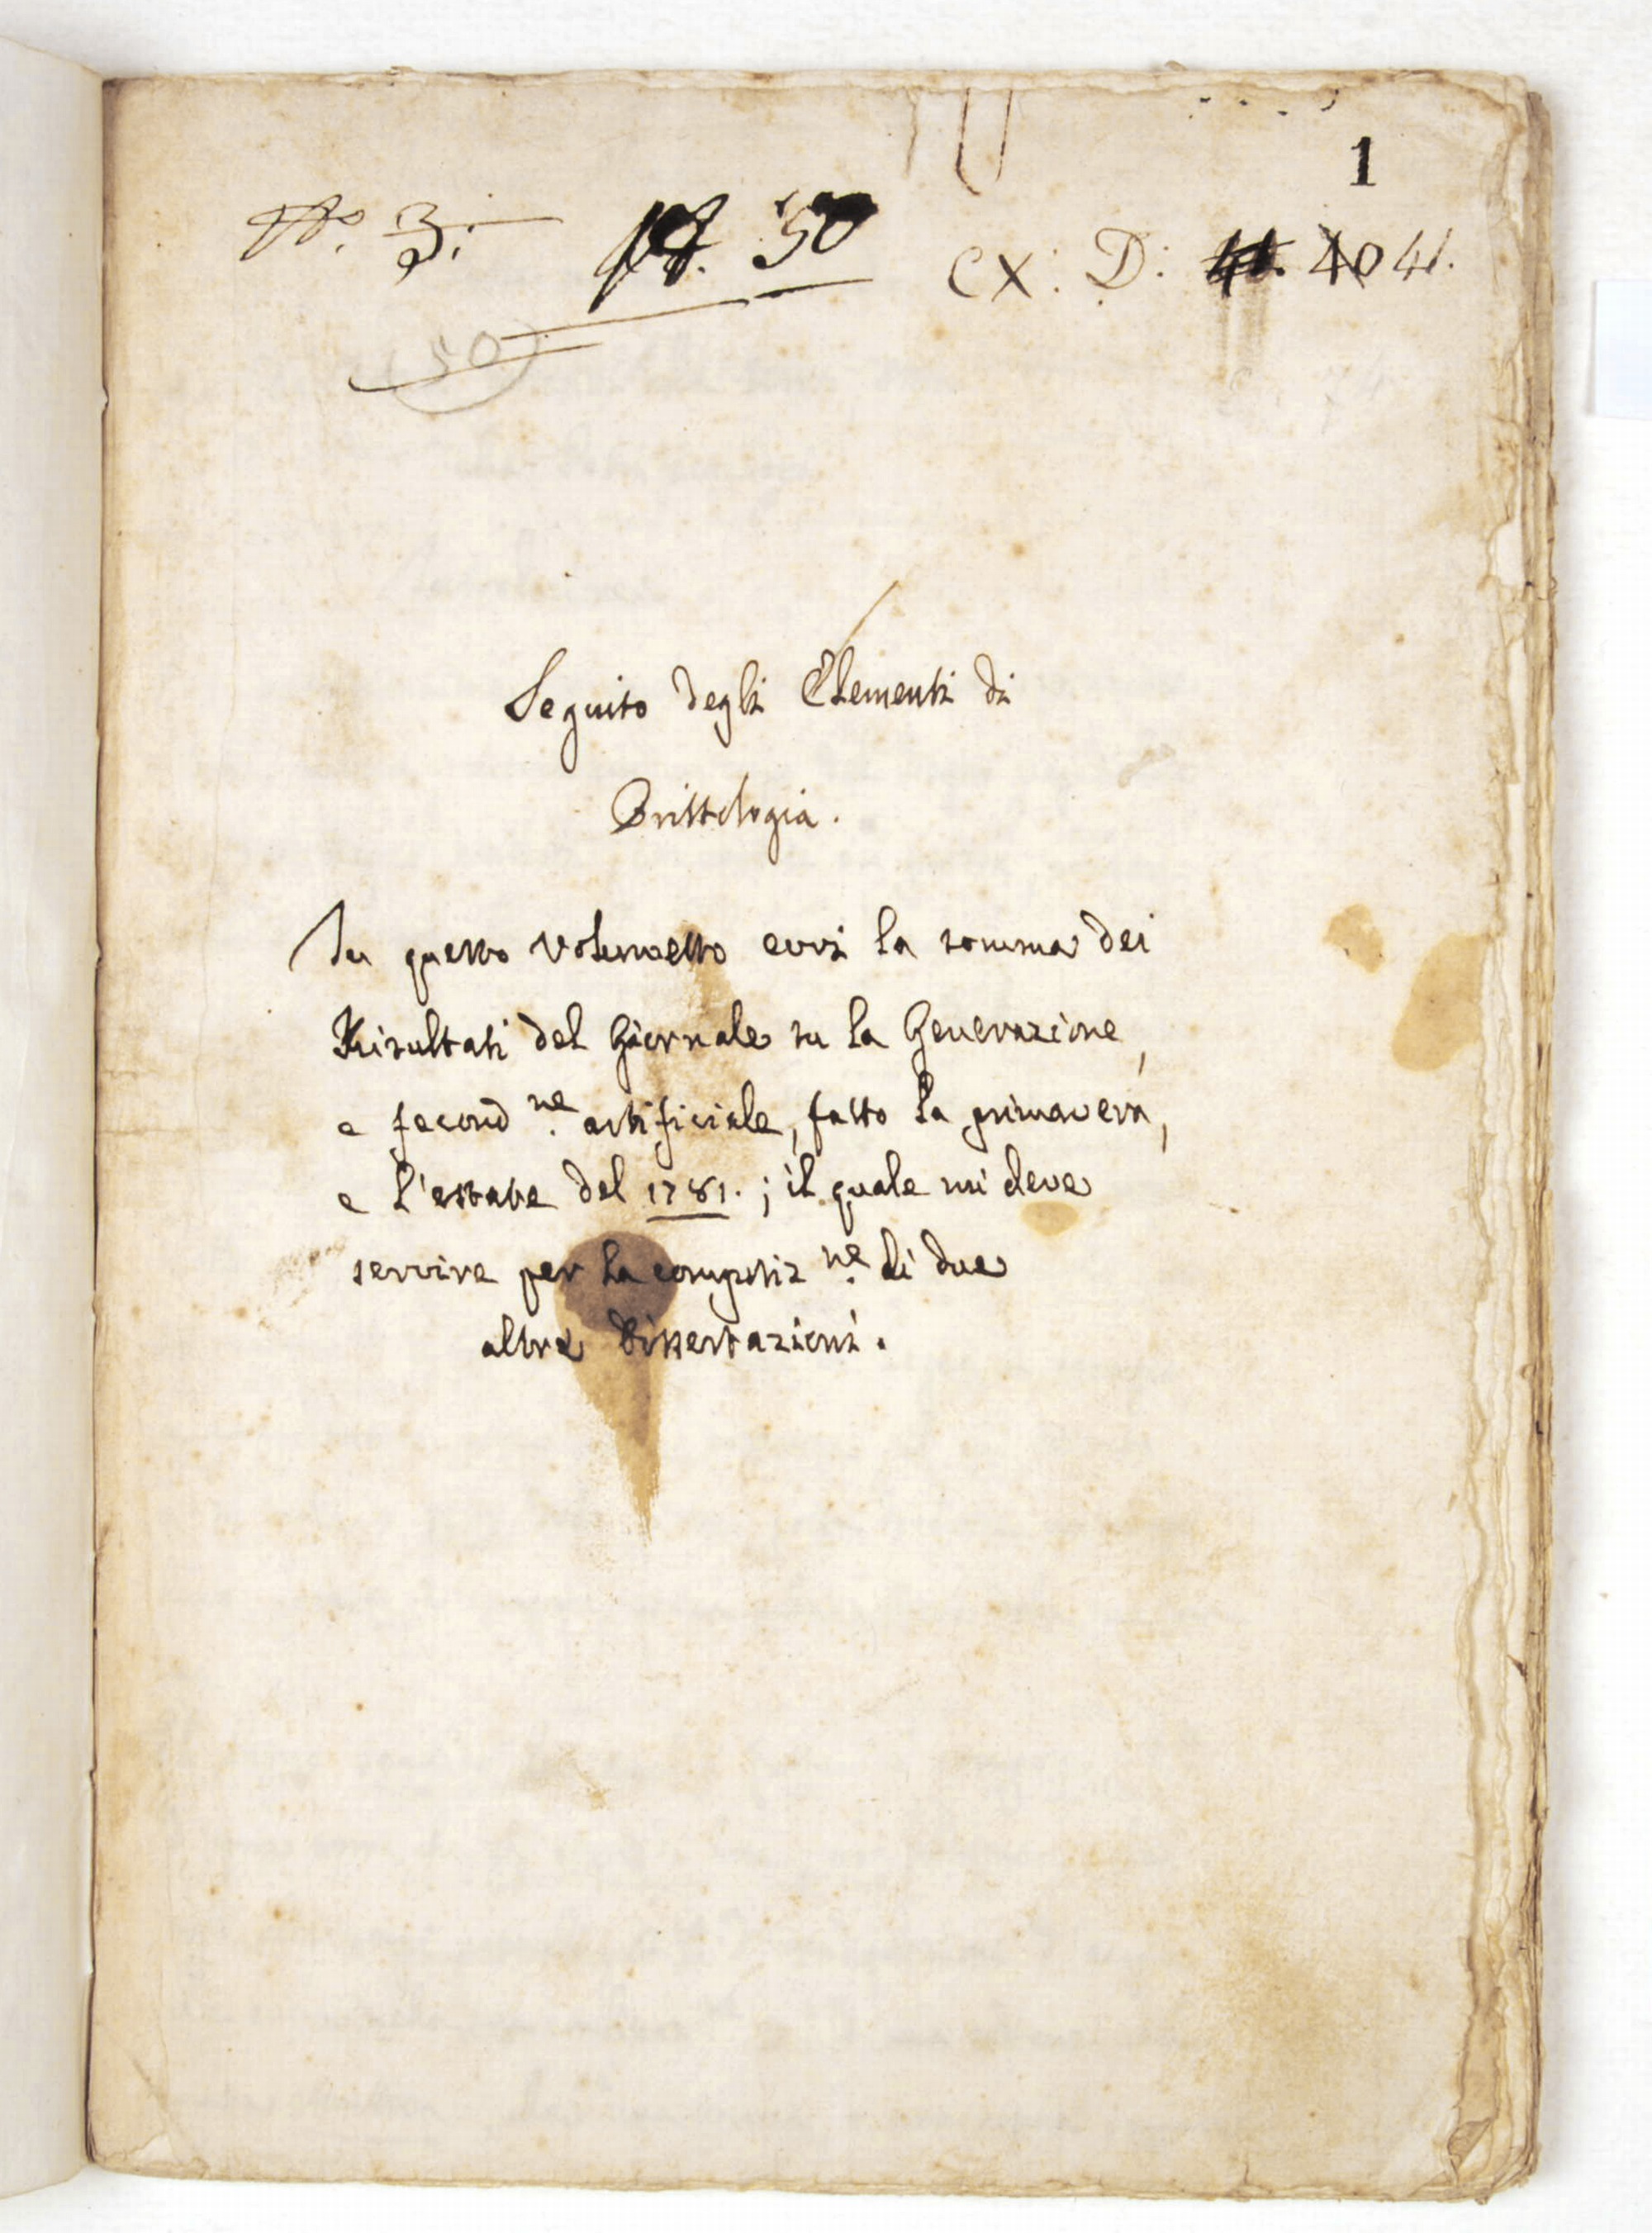 1
No. 3.
50
CX: D: 41. 40 41.
(50)
Seguito degli Elementi di
In questo volumetto evvi la somma dei
Risultati del Giornale su la Generazione,
e fecond.ne artificiale, fatto la primavera,
e l'estate del 1781.; il quale mi deve
servire per la composiz.ne di due
altre Dissertazioni.